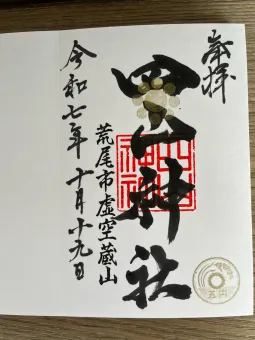 奉拝
四山神社
四山神社
荒尾市虚空蔵山
令和七年十月十九日
五円